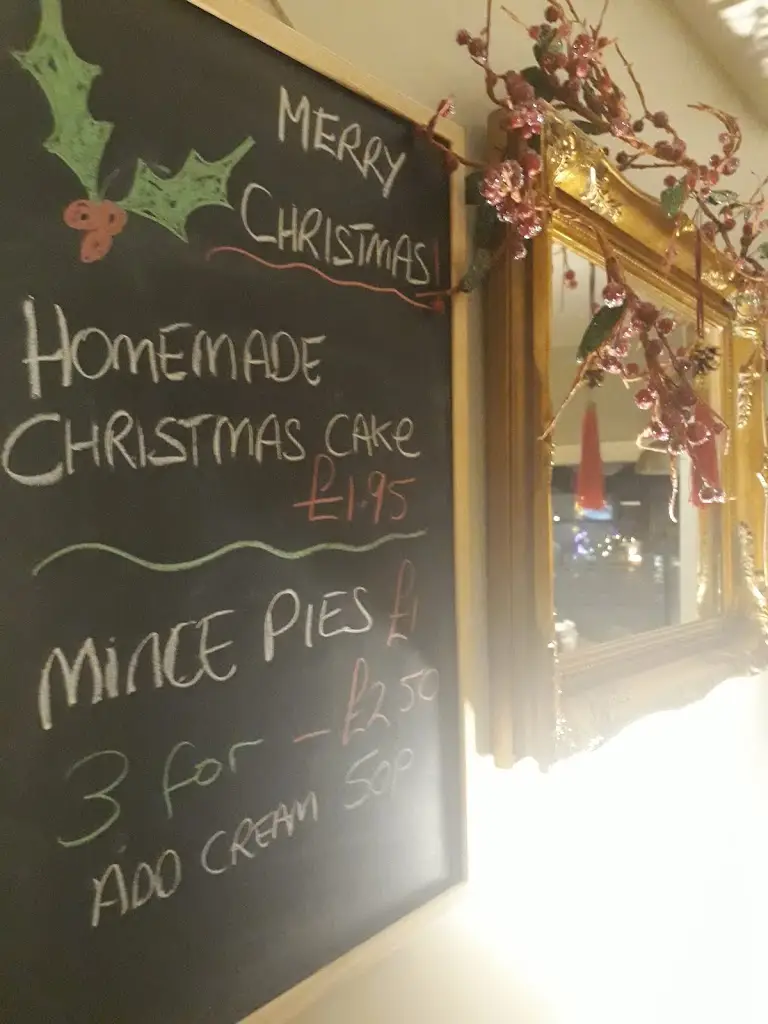 MERRY
CHRISTMAS!
HOMEMADE
CHRISTMAS CAKE
£1.95
MINCE PIES £1
3 for - £2.50
ADD CREAM 50p